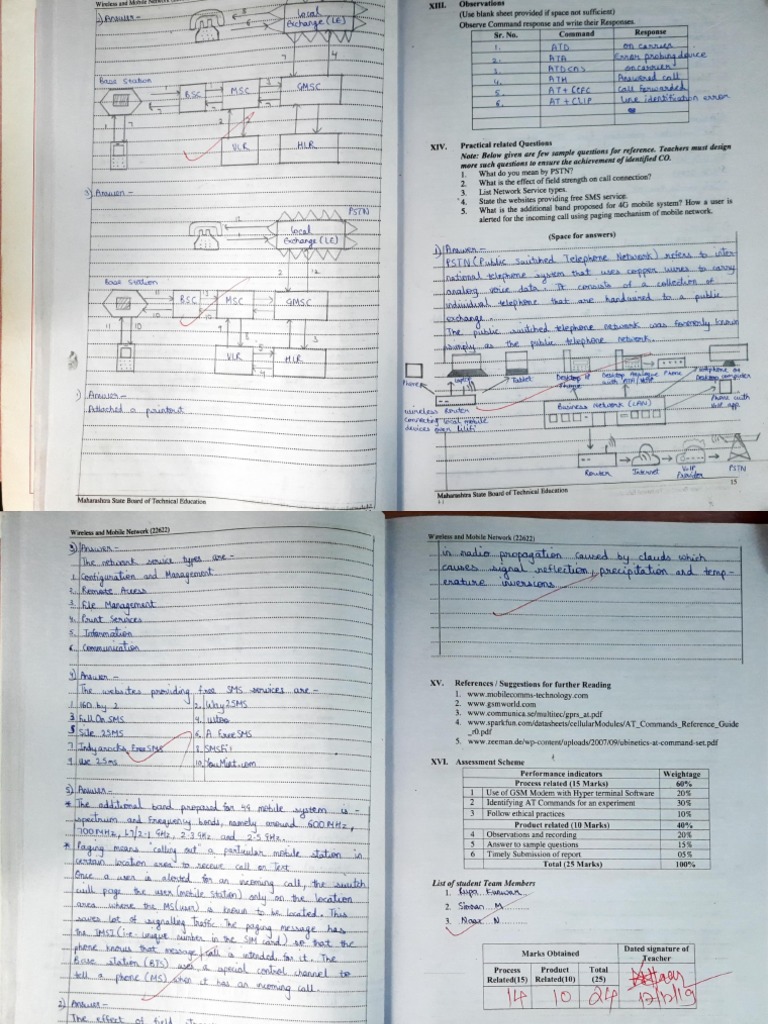 Wireless and Mobile Network
2) Answer -
Local
Exchange (LE)
Base station
BSC
MSC
GMSC
VLR
HLR
3) Answer -
PSTN
Local
Exchange (LE)
Base station
BSC
MSC
GMSC
VLR
HLR
1) Answer -
Attached a printout
Maharashtra State Board of Technical Education
XIII. Observations
(Use blank sheet provided if space not sufficient)
Observe Command response and write their Responses.
Sr. No. Command Response
1. ATD on carrier
2. ATA Error probing device
3. ATDCAS on carrier
4. ATH Answered call
5. AT + CCFC Call forwarded
6. AT + CLIP Line identification error
XIV. Practical related Questions
Note: Below given are few sample questions for reference. Teachers must design
more such questions to ensure the achievement of identified CO.
1. What do you mean by PSTN?
2. What is the effect of field strength on call connection?
3. List Network Service types.
4. State the websites providing free SMS service.
5. What is the additional band proposed for 4G mobile system? How a user is
alerted for the incoming call using paging mechanism of mobile network.
(Space for answers)
1) Answer -
PSTN (Public Switched Telephone Network) refers to inter-
national telephone system that uses copper wires to carry
analog voice data. It consists of a collection of
individual telephone that are hardwired to a public
exchange.
The public switched telephone network was formerly known
simply as the public telephone network.
Phone
Laptop
Tablet
Desktop IP
Phone
Desktop Analogue Phone
Softphone on
Desktop computer
wireless Router
connecting local mobile
devices over
Business Network (LAN)
Phone with
VoIP app
Router
Internet
VoIP
Provider
PSTN
Maharashtra State Board of Technical Education
15
Wireless and Mobile Network (22622)
3) Answer -
The network service types are -
1. Configuration and Management
2. Remote Access
3. File Management
4. Print Services
5. Information
6. Communication
4) Answer -
The websites providing free SMS services are -
1. 160 by 2 2. Way2SMS
3. Full On SMS 4.
5. Site 2SMS 6. A Free SMS
7. Indyarocks Free SMS 8. SMSFi
9. Use 2 sms 10. YouMint.com
5) Answer -
* The additional band proposed for 4G mobile system is -
spectrum and Frequency bands, namely around 600 MHz,
700 MHz, 1.7/2.1 GHz, 2.3 GHz and 2.5 GHz.
* Paging means "calling out" a particular mobile station in
certain location area to receive call or Text.
Once a user is alerted for an incoming call, the switch
will page the user (mobile station) only on the location
area where the MS(user) is known to be located. This
saves lot of signalling traffic. The paging message has
the IMSI (i.e. unique number in the SIM card) so that the
phone knows that message/call is intended for it. The
Base station (BTS) uses a special control channel to
tell a phone (MS) when it has an incoming call.
2) Answer -
The effect of field
Wireless and Mobile Network (22622)
in radio propagation caused by clouds which
causes signal reflection, precipitation and temp-
erature inversions.
XV. References / Suggestions for further Reading
1. www.mobilecomms-technology.com
2. www.gsmworld.com
3. www.communica.se/multitec/gprs_at.pdf
4. www.sparkfun.com/datasheets/cellularModules/AT_Commands_Reference_Guide
_r0.pdf
5. www.zeeman.de/wp-content/uploads/2007/09/ubinetics-at-command-set.pdf
XVI. Assessment Scheme
Performance indicators Weightage
Process related (15 Marks) 60%
1 Use of GSM Modem with Hyper terminal Software 20%
2 Identifying AT Commands for an experiment 30%
3 Follow ethical practices 10%
Product related (10 Marks) 40%
4 Observations and recording 20%
5 Answer to sample questions 15%
6 Timely Submission of report 05%
Total (25 Marks) 100%
List of student Team Members
1.
2. Simran M
3. Naaz N
Marks Obtained Dated signature of
Teacher
Process
Related(15) Product
Related(10) Total
(25)
14 10 24 12/12/19